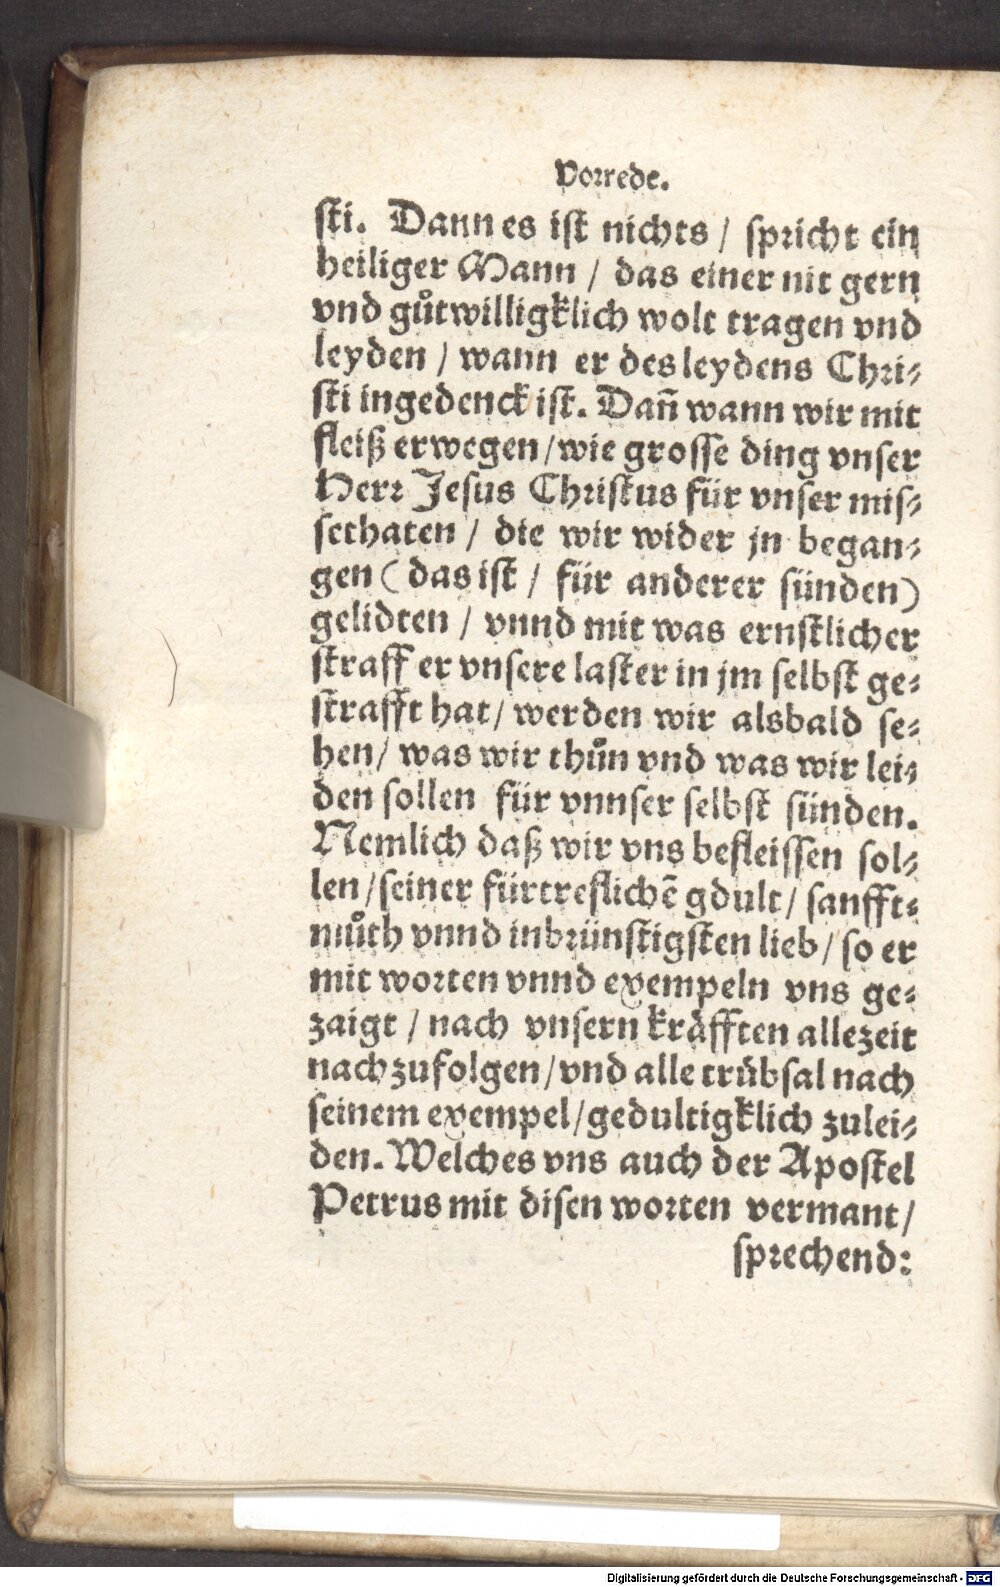 Vorrede.
sti. Dann es ist nichts / spricht ein
heiliger Mann / das einer nit gern
vnd gůtwilligklich wolt tragen vnd
leyden / wann er des leydens Chri-
sti ingedenck ist. Dañ wann wir mit
fleiß erwegen / wie grosse ding vnser
Herr Jesus Christus für vnser mis-
sethaten / die wir wider jn began-
gen (das ist / für anderer sünden)
gelidten / vnnd mit was ernstlicher
straff er vnsere laster in jm selbst ge-
strafft hat / werden wir alsbald se-
hen / was wir thůn vnd was wir lei-
den sollen für vnnser selbst sünden.
Nemlich daß wir vns befleissen sol-
len / seiner fürtreflichẽ gdult / sanfft-
můth vnnd inbrünstigsten lieb / so er
mit worten vnnd exempeln vns ge-
zaigt / nach vnsern kräfften allezeit
nachzufolgen / vnd alle trůbsal nach
seinem exempel / gedultigklich zulei-
den. Welches vns auch der Apostel
Petrus mit disen worten vermant /
sprechend:
Digitalisierung gefördert durch die Deutsche Forschungsgemeinschaft - DFG